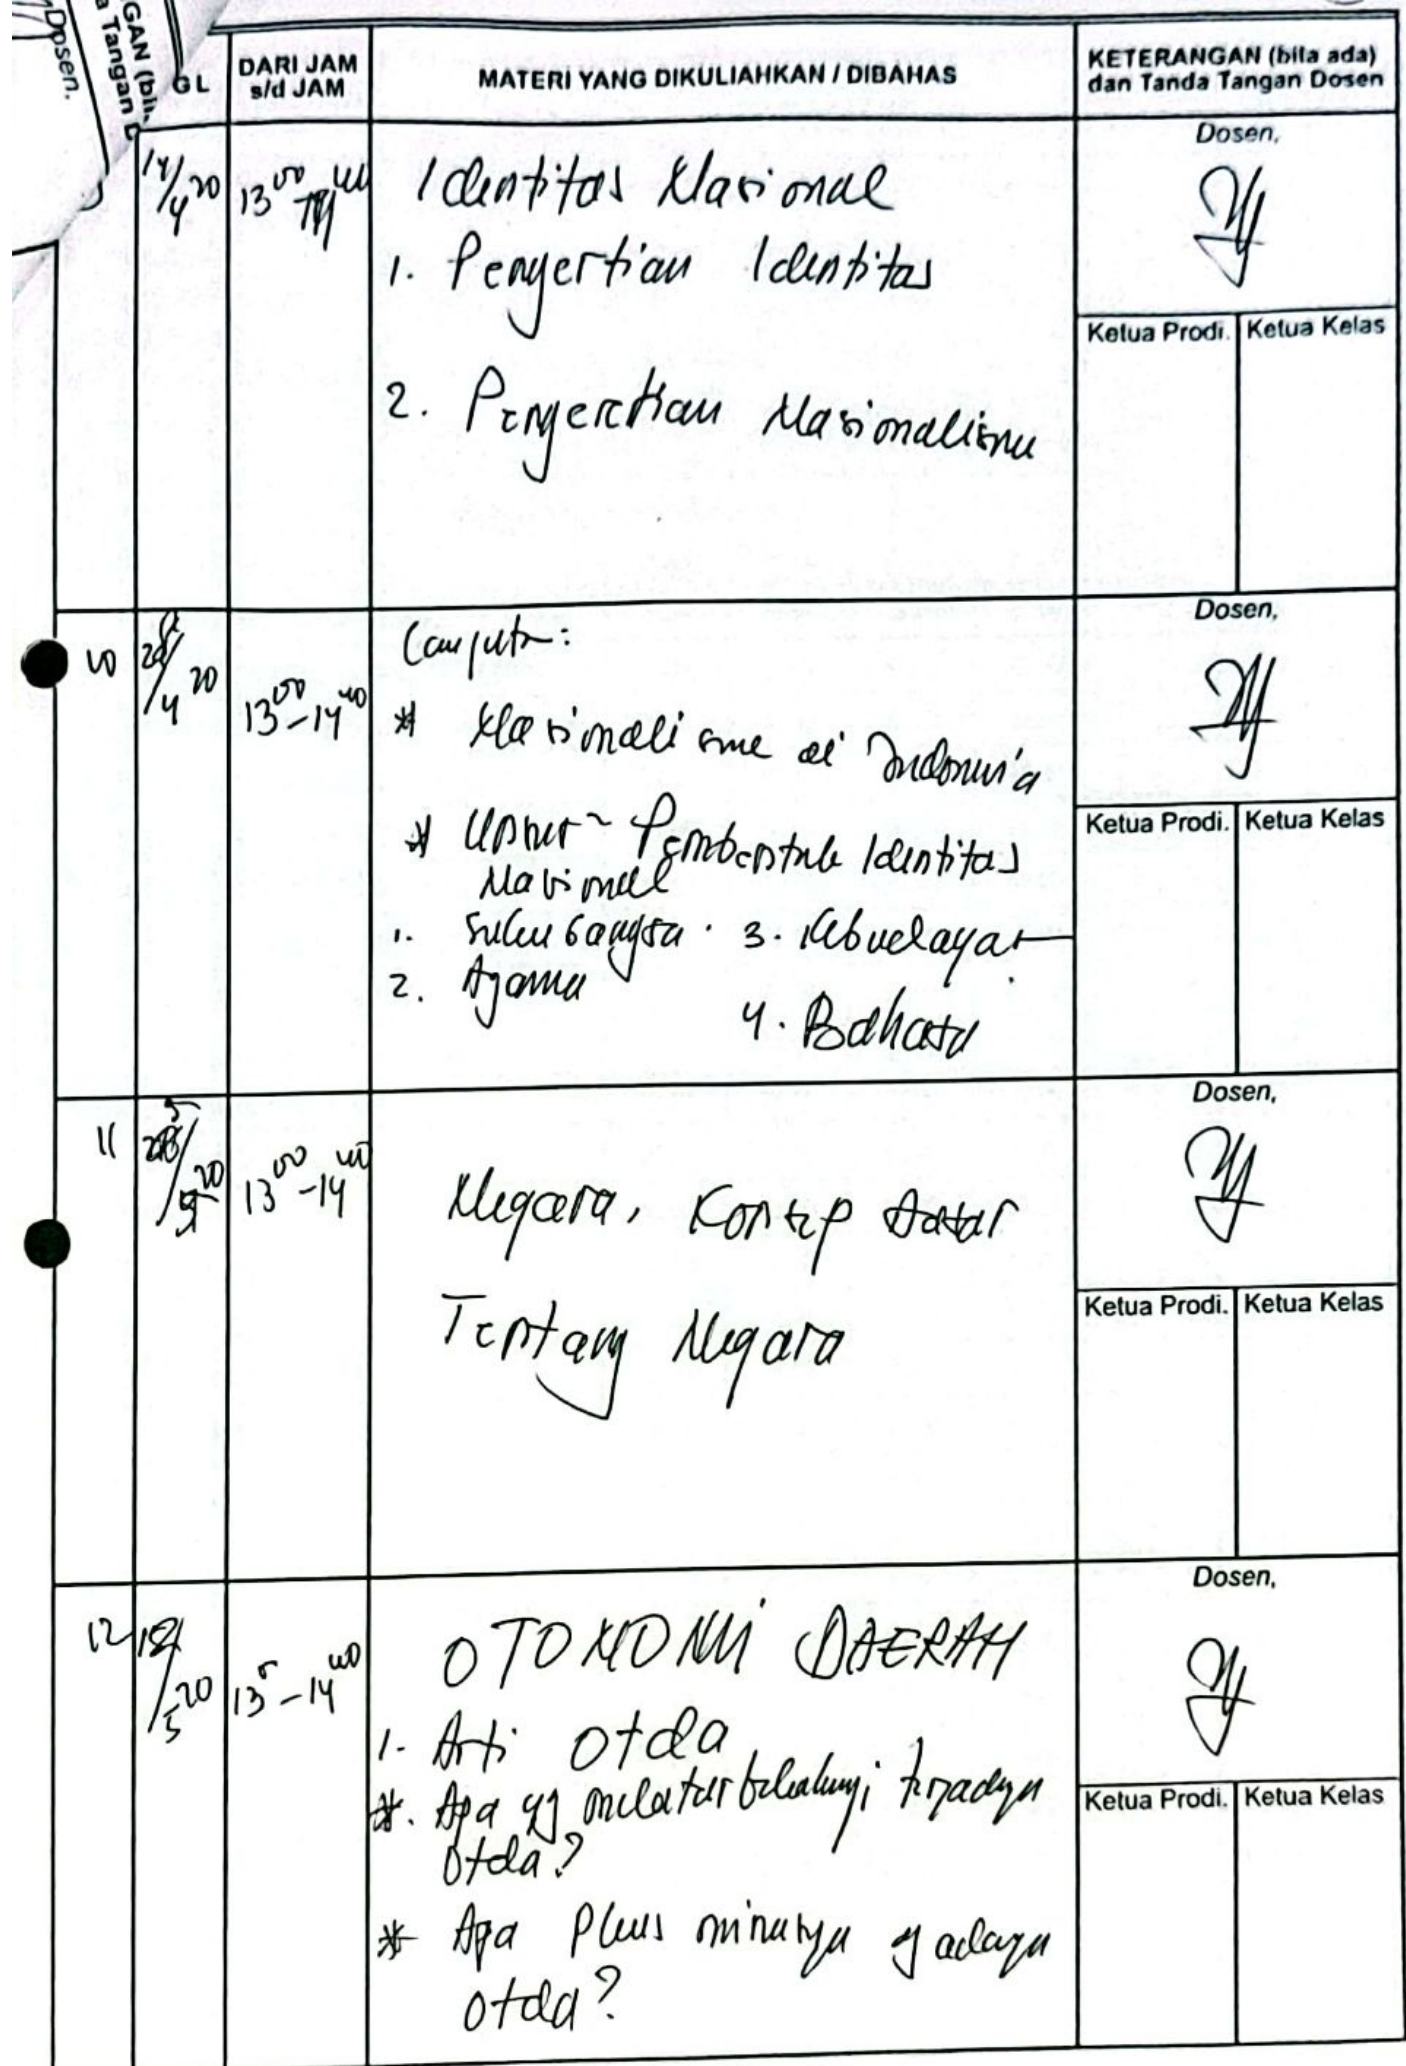 GAN (bil
a Tangan D
Dosen.
GL
DARI JAM
s/d JAM
MATERI YANG DIKULIAHKAN / DIBAHAS
KETERANGAN (bila ada)
dan Tanda Tangan Dosen
14/4 20
13 00
40
Identitas Nasional
1. Pengertian Identitas
2. Pengertian Nasionalisme
Dosen,
Ketua Prodi. Ketua Kelas
10
/4 20
13 00 - 14 40
Lanjutn:
* Nasionalisme di Indonesia
* Unsur ~ Pembentuk Identitas
Nasional
1. Suku bangsa. 3. Kebudayaan
2. Agama
4. Bahasa
Dosen,
Ketua Prodi. Ketua Kelas
11
20
13 00 - 14 40
Negara, Konsep Dasar
Tentang Negara
Dosen,
Ketua Prodi. Ketua Kelas
12
/5 20
13 - 14 40
OTONOMI DAERAH
1. Arti otda
*. Apa yg melatarbelakangi terjadinya
otda?
* Apa Plus minusnya adanya
otda?
Dosen,
Ketua Prodi. Ketua Kelas